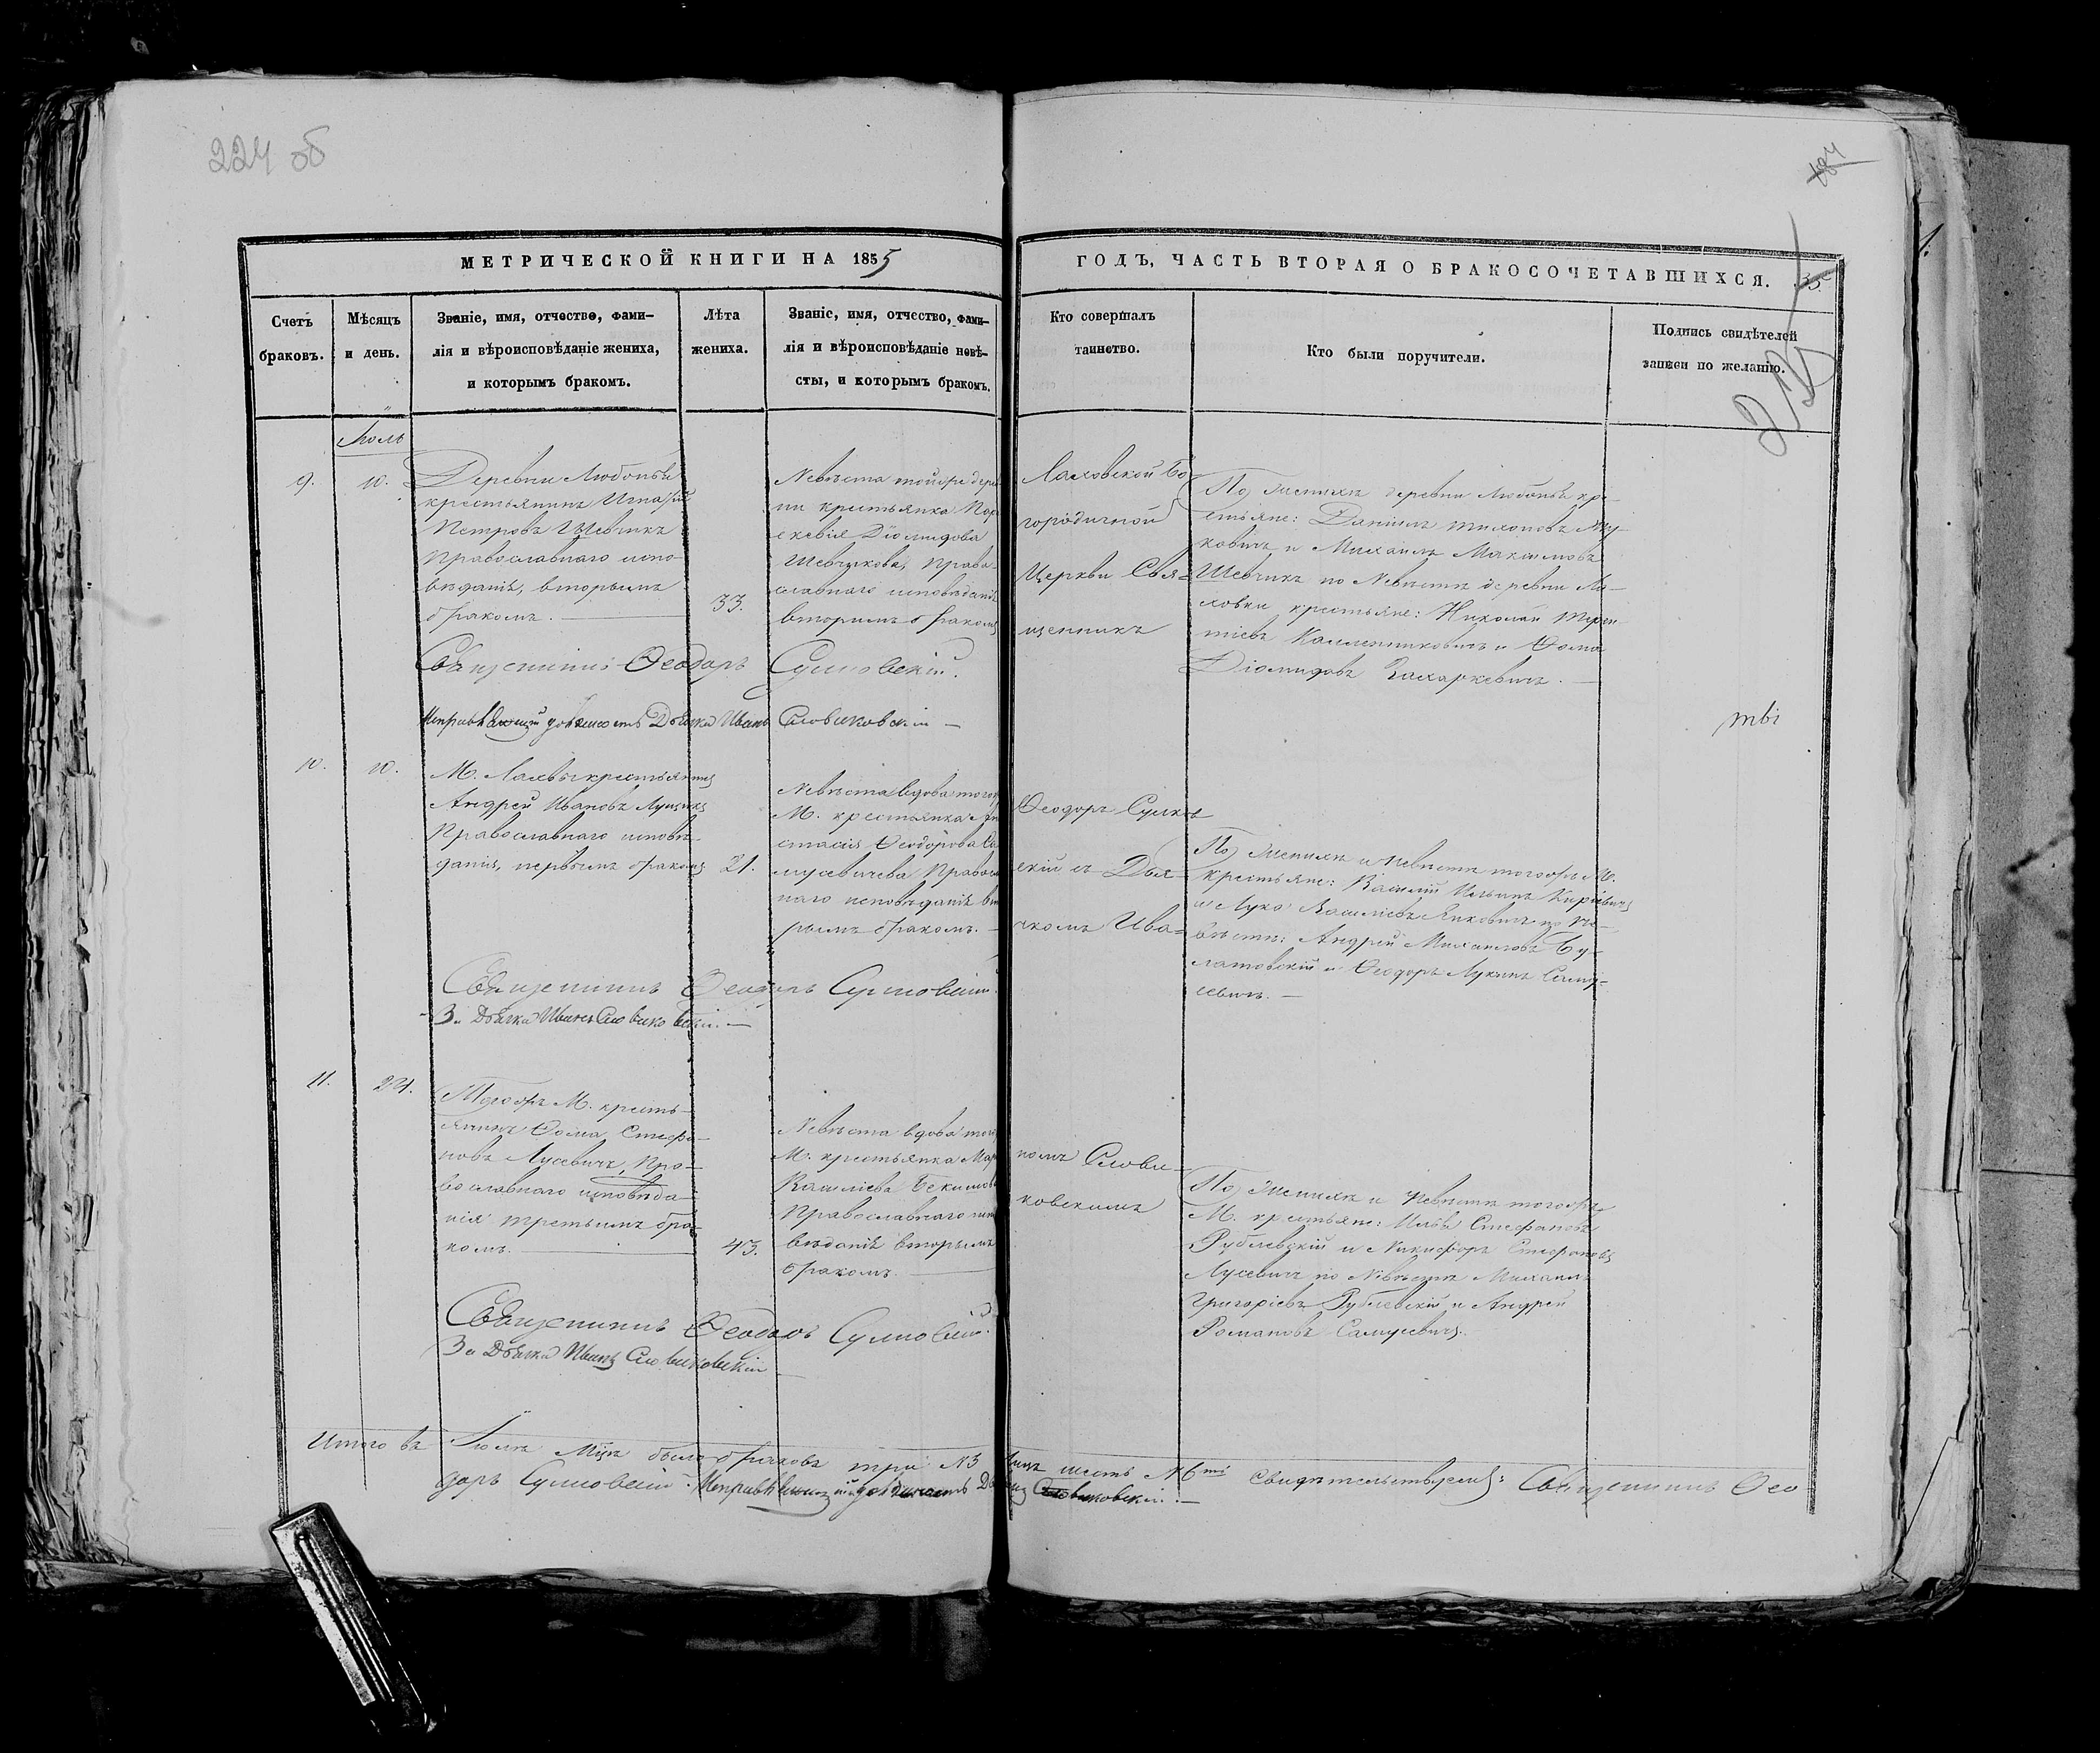 224 об
184
МЕТРИЧЕСКОЙ КНИГИ НА 1855
ГОДЪ, ЧАСТЬ ВТОРАЯ О БРАКОСОЧЕТАВШИХСЯ.
35
225
Счетъ
браковъ.
Мѣсяцъ
и день.
Званіе, имя, отчество, фами-
лія и вѣроисповѣданіе жениха,
и которымъ бракомъ.
Лѣта
жениха.
Званіе, имя, отчество, фами-
лія и вѣроисповѣданіе невѣ-
сты, и которымъ бракомъ.
Кто совершалъ
таинство.
Кто были поручители.
Подпись свидѣтелей
записи по желанію.
Іюль
9.
10.
Деревни Любопѣ
крестьянинъ Игнатій
Петровъ Шевчикъ
Православнаго испо-
вѣданія, вторымъ
бракомъ.
33.
Невѣста тойже дерев
ни крестьянка Пар
скевія Діомидова
Шевчукова, Право-
славнаго исповѣданія
вторымъ бракомъ
Лаховской Бо
городичной
Церкви Свя=
щенникъ
По женихѣ деревни Любопѣ кре-
стьяне: Даніилъ Тихоновъ
ковичъ и Михаилъ Максимовъ
Шевчикъ по Невѣстѣ деревни
ловки крестьяне: Николай Терен
тіевъ и Ѳома
Діомидовъ Захаркевичъ.
Священникъ Ѳеодоръ Сулковскій.
Исправляющій должность Дьячка Иванъ Словиковскій
10.
10.
М. Лахвы крестьянинъ
Андрей Ивановъ Лущикъ
Православнаго исповѣ-
данія, первымъ бракомъ
21.
Невѣста вдова тогоже
М. крестьянка Ан
стасія Ѳеодорова Са
мусевичева Правосл
наго исповѣданія вто
рымъ бракомъ.
Ѳеодоръ Сулков
скій съ Дья-
чкомъ Ива=
По женихѣ и невѣстѣ тогоже М.
крестьяне: Василій Ильинъ
и Лука Василіевъ по не-
вѣстѣ: Андрей Михаиловъ Бу-
латовскій и Ѳеодоръ Лукинъ Саму-
севичъ.
Священникъ Ѳеодоръ Сулковскій.
За Дьячка Иванъ Словиковскій.
11.
24.
Тогожъ М. кресть-
янинъ Ѳома Стефа-
новъ Лусевичъ, Пра-
вославнаго исповѣда-
нія третьимъ бра-
комъ.
43.
Невѣста вдова того
М. крестьянка Мар
Василіева
Православнаго испо
вѣданія вторымъ
бракомъ.
номъ Слови-
ковскимъ
По женихѣ и Невѣстѣ тогожъ
М. крестьяне: Илья Стефановъ
Рублевскій и Никифоръ Стефановъ
Лусевичъ по Невѣстѣ Михаилъ
Григоріевъ Рублевскій и Андрей
Романовъ Самусевичъ.
Священникъ Ѳеодоръ Сулковскій.
За Дьячка Иванъ Словиковскій
Итого въ Іюлѣ Мцѣ было браковъ три № 3 лицъ шесть № 6ти свидѣтельствуемъ: Священникъ Ѳео
доръ Сулковскій. Исправляющій должность Дьячка Словиковскій.